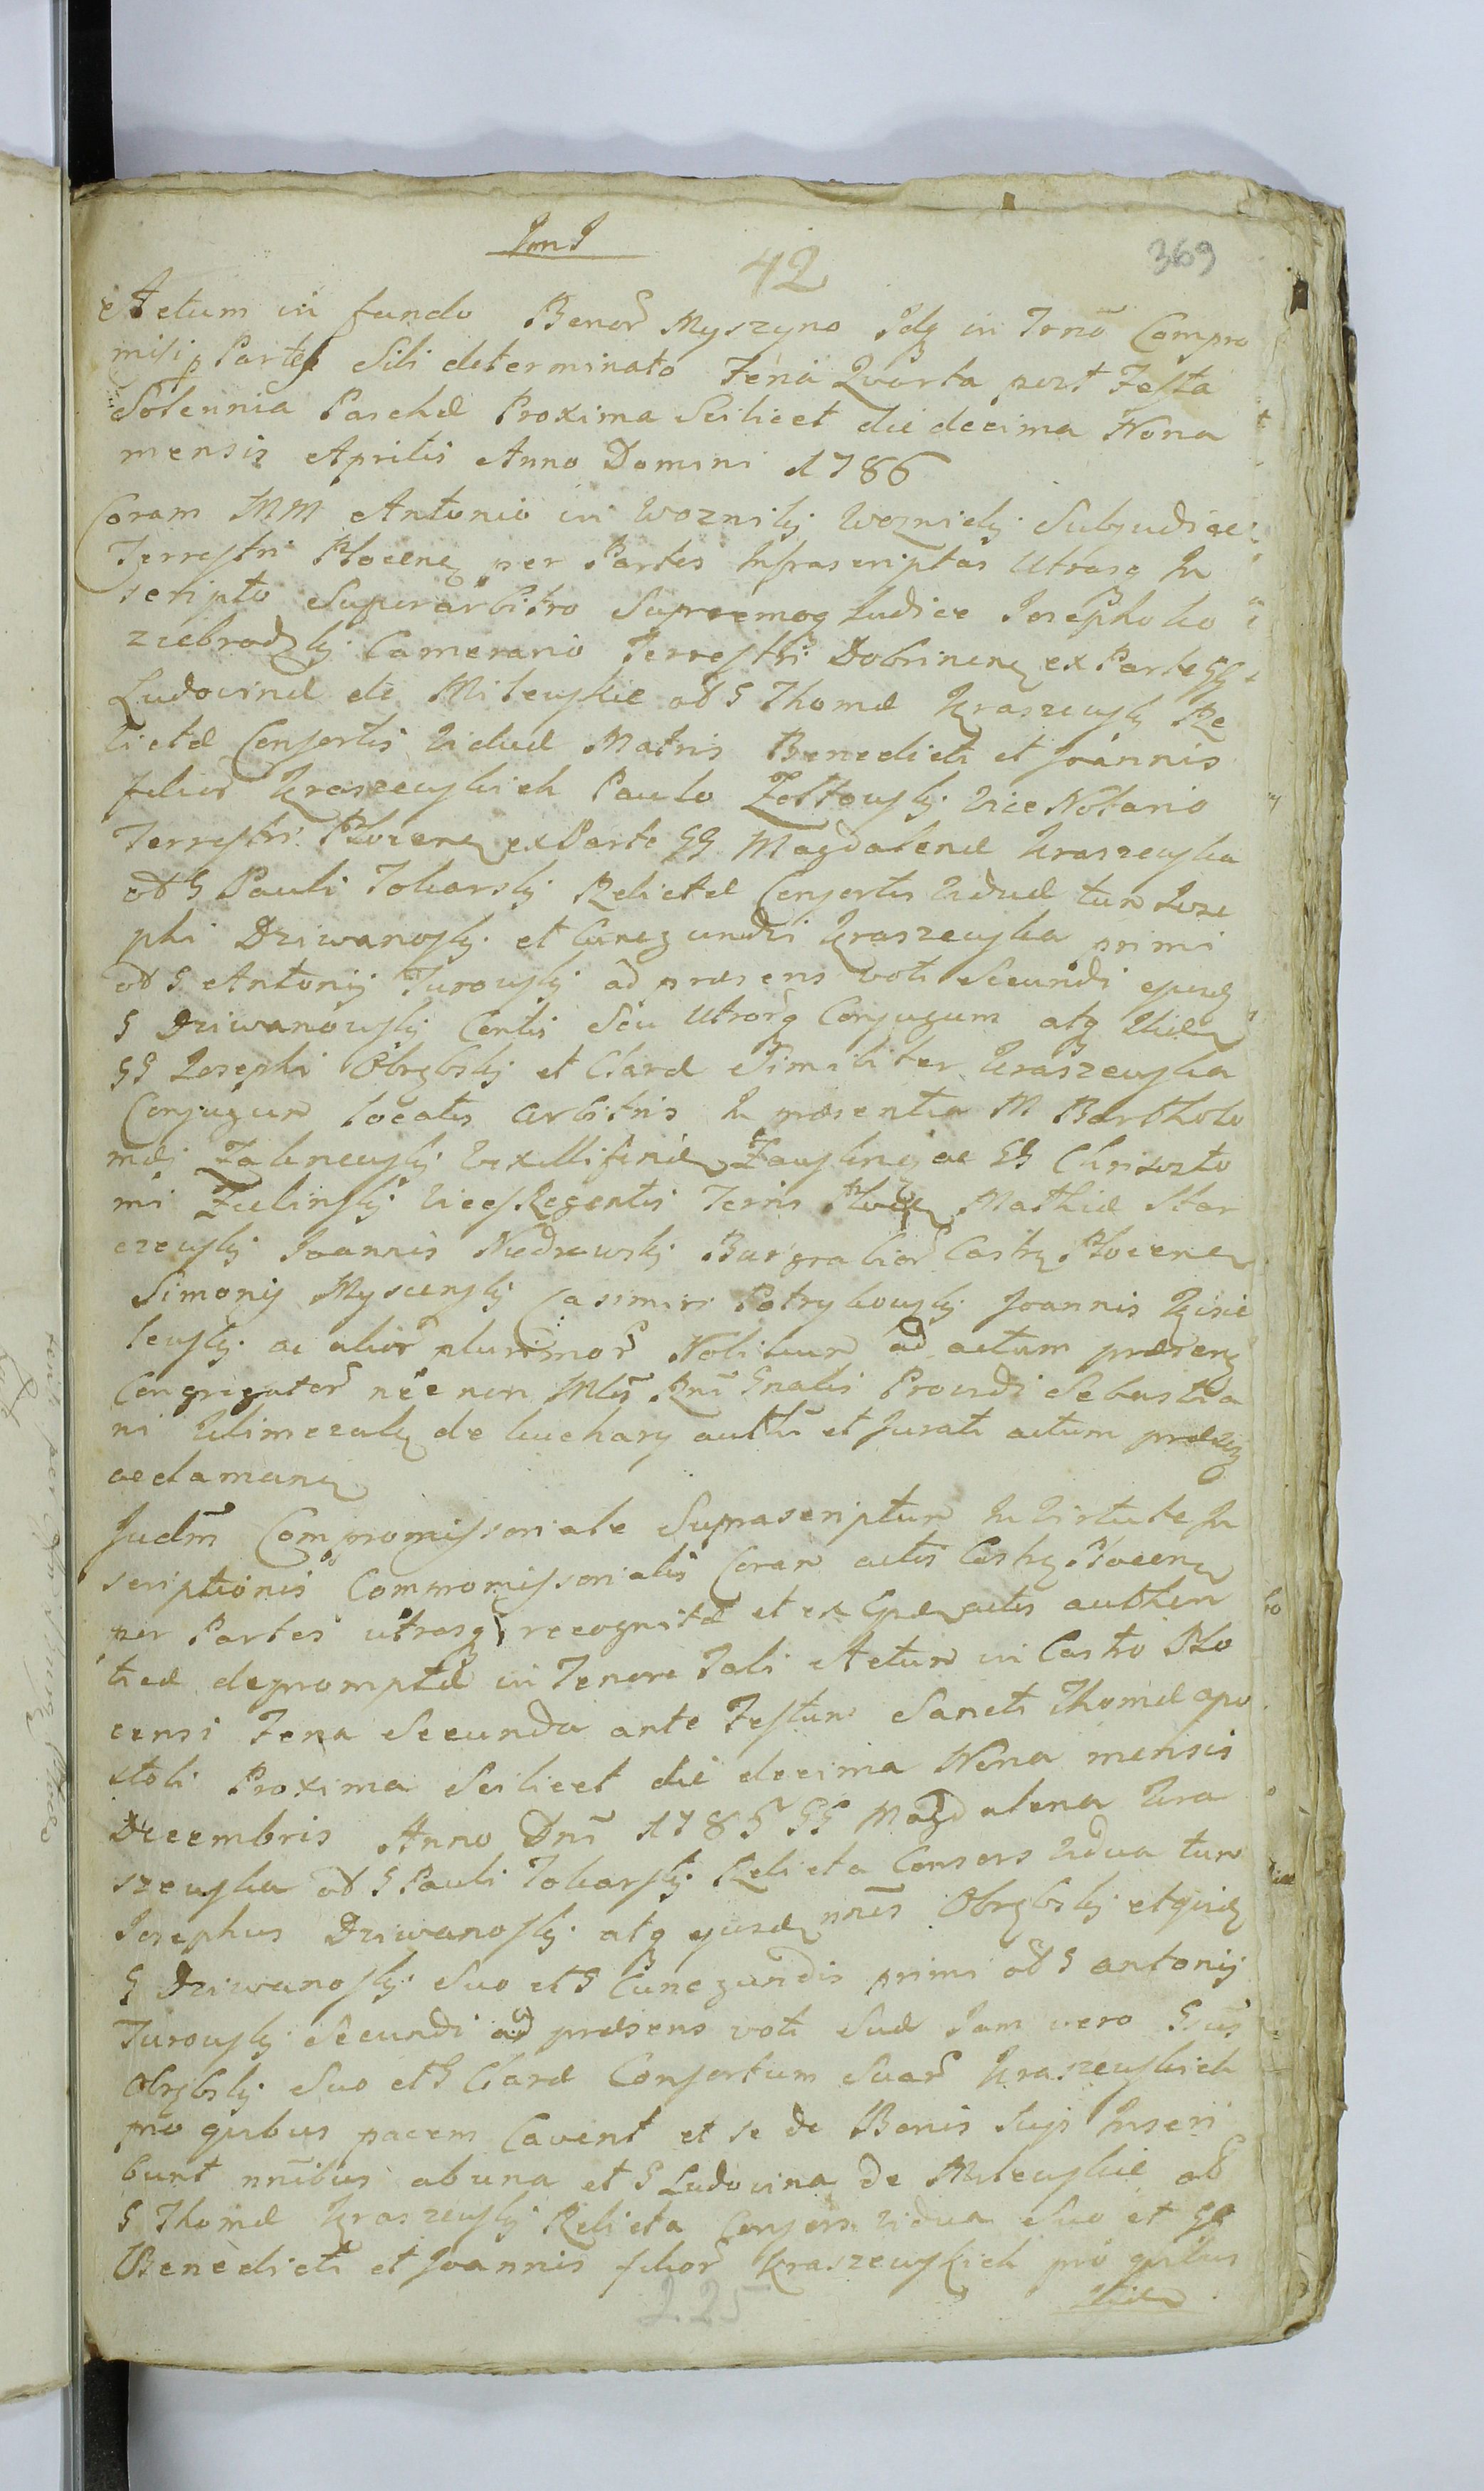 42
369
Actum in fundo Bonor Myszyno Idq in Trno Compro
misi p Partes Sibi determinato Feria Quarta post Festa
Solennia Paschæ Proxima Scilicet die decima Nona
mensis Aprilis Anno Domini 1786
Coram MM Antonio in Wozniki Woznicki Subjudice
Terrestri Plocenq per Partes Infrascriptas Utrasq In
scripto Superarbitro Supremoq Iudice Josepho Ko
ziebrodzki Camerario Terrestri Dobrinenq ex Parte GG
Ludovinæ de Milewskie od G Thomæ Kraszewski Re
lictæ Consortis Viduæ Matris Benedicti et Joannis
filior Kraszewskich Paulo Zołtowski Vice Notario
Terrestri Plocenq ex Parte GG Magdalenæ Kraszewska
od G Pauli Tokarski Relictæ Consortis Viduæ tum Jose
phi Dziwanoski et Cunegundis Kraszewska primi
od G Antonij Turowski ad præsens voti Secundi ejusd
G Dziwanowski Contis Seu Utrorq Conjugum atq itidem
GG Josephi Obrębski et Claræ Similiter Kraszewska
Conjugum locatis arbitris In præsentia M Bartholo
mæi Vexilliferidæ ac GG Chrisosto
mi Zielinski Vices Regentis Terris Plocen Mathiæ Star
czewski Joannis Niedzwski Burgrabior Castr Plocenen
Simonij Myscenski Casimiri Potrykowski Joannis Kisie
lewski ac alior plurimor Nobilium ad actum præsenq
Congregator nec non Mlis Rni Gnalis Providi Sebastia
ni Klimczak de Kuchary auth et Jurati actum præsq
acclamanq
Judm Compromissoriale Suprascriptum In Virtute In
scriptionis Compromissorialis Coram actis Castr Plocenq
per Partes utrasq recognitæ et ex actis authen
ticæ depromptæ in Tenore Tali Actum in Castro Plo
censi Feria Secunda ante Festum Sancti Thomæ apo
stoli Proxima Scilicet die decima Nona mensis
Decembris Anno Dni 1785 GG Magdalena Kra
szewska od G Pauli Tokarski Relicta Consors Vidua tum
Josephus Dziwanoski atq ejusd nnis Obrębski etquid
G Dziwanoski Suo et G Cunegundis primi od G Antonij
Turowski Secundi ad præsens voti Suæ Jam vero Gsus
Obrębski Suo et G Claræ Consortum Suar Kraszewskich
pro quibus pacem Cavent et se de Bonis Suis Inscri
bunt nnibus ab una et G Ludovina de Milewskie od
G Thomæ Kraszewski Relicta Consors Vidua Suo et GG
Benedicti et Joannis filior Kraszewskich pro quibus
225
itidem